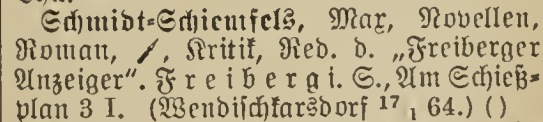 Schmidt-Schicufels, Max, Novellen,
Roman, /, Kritik, Red. d. „Freiberger
Anzeiger“. Freiberg i. S., Am Schieß-
plan 3 I. (Wendischkarsdorf 17 1 64.) ()